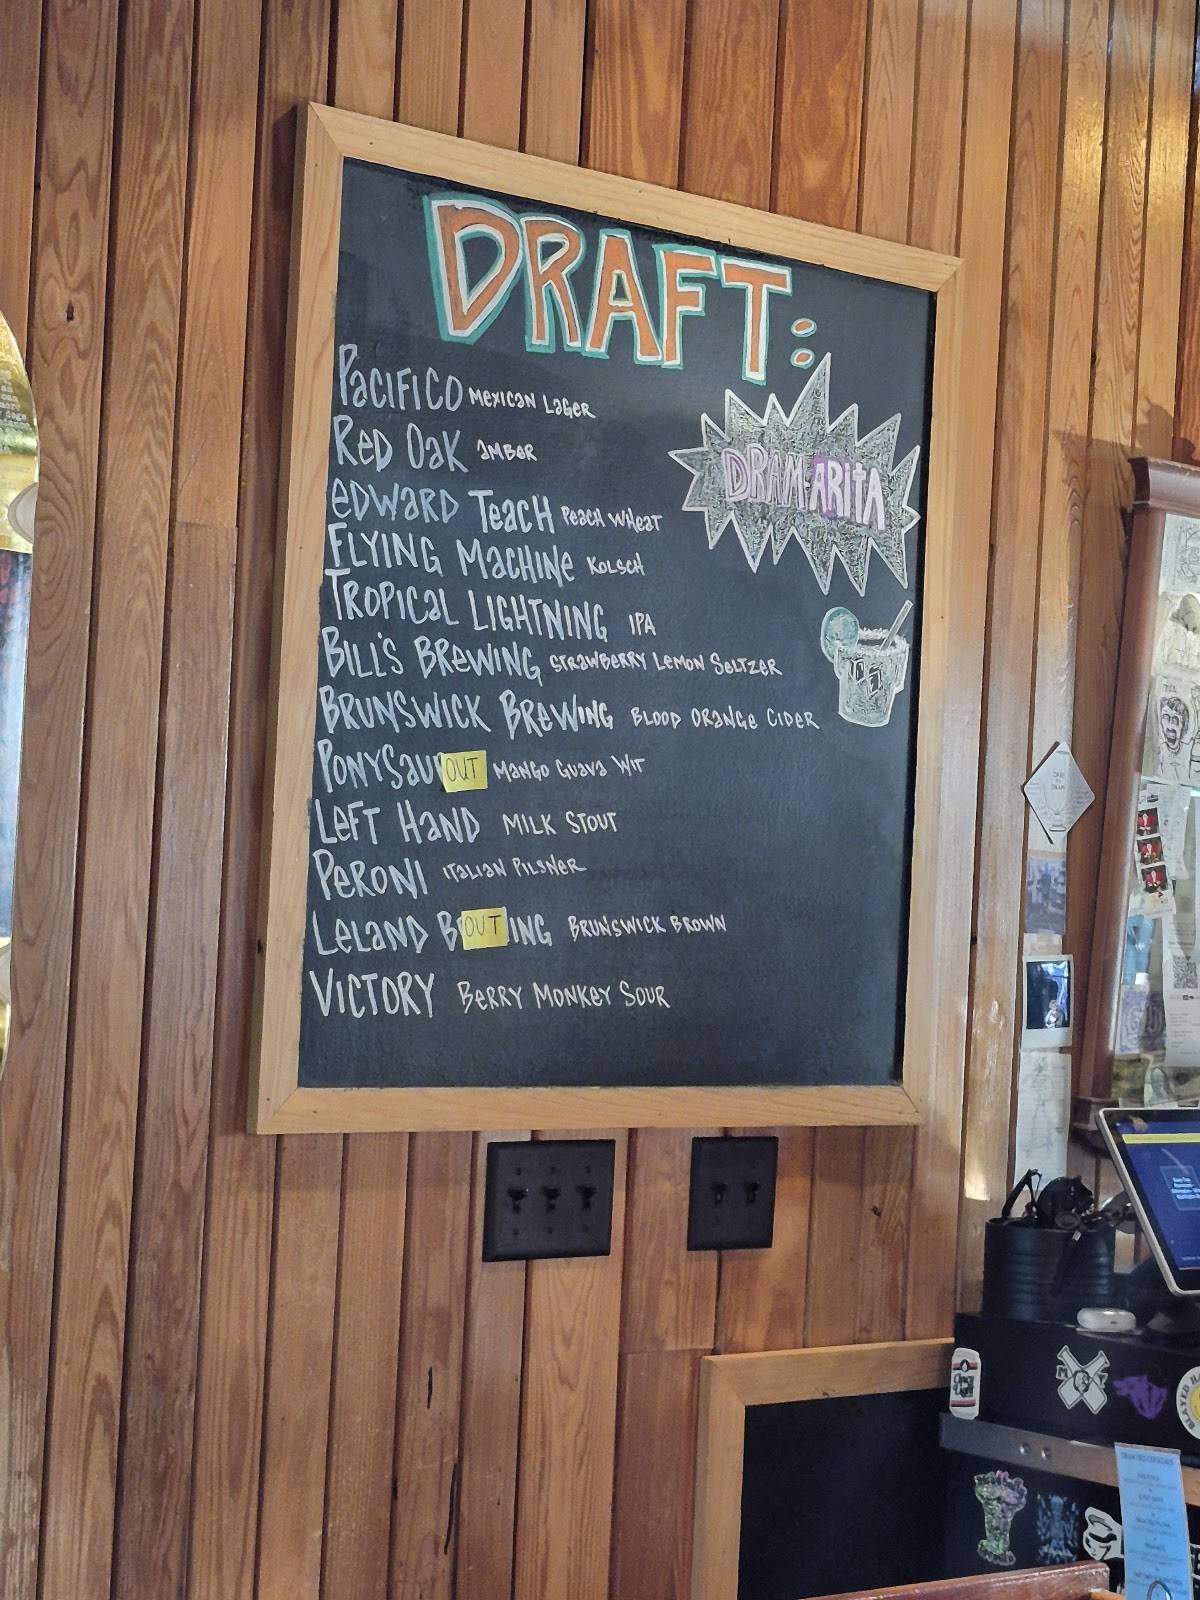 DRAFT:
PACIFICO MEXICAN LAGER
RED OAK AMBER
EDWARD TEACH PEACH WHEAT
FLYING MACHINE KOLSCH
TROPICAL LIGHTNING IPA
BILL'S BREWING STRAWBERRY LEMON SELTZER
BRUNSWICK BREWING BLOOD ORANGE CIDER
PONYSAU OUT MANGO GUAVA WIT
LEFT HAND MILK STOUT
PERONI ITALIAN PILSNER
LELAND B OUT ING BRUNSWICK BROWN
VICTORY BERRY MONKEY SOUR
DRAM-ARITA